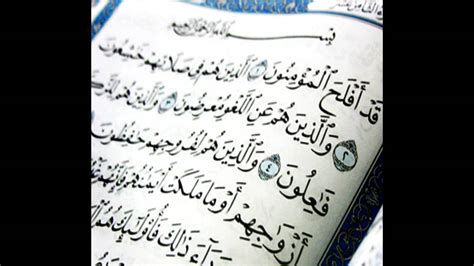 بِسْمِ ٱللَّهِ ٱلرَّحْمَٰنِ ٱلرَّحِيمِ
قَدْ أَفْلَحَ ٱلْمُؤْمِنُونَ ١ ٱلَّذِينَ هُمْ فِي صَلَاتِهِمْ خَٰشِعُونَ
٢ وَٱلَّذِينَ هُمْ عَنِ ٱللَّغْوِ مُعْرِضُونَ ٣ وَٱلَّذِينَ هُمْ
فَٰعِلُونَ ٤ وَٱلَّذِينَ هُمْ لِفُرُوجِهِمْ حَٰفِظُونَ
أَزْوَٰجِهِمْ أَوْ مَا مَلَكَتْ أَيْمَٰنُهُمْ فَإِنَّهُمْ
ذَٰلِكَ فَأُوْلَٰٓئِكَ هُمُ